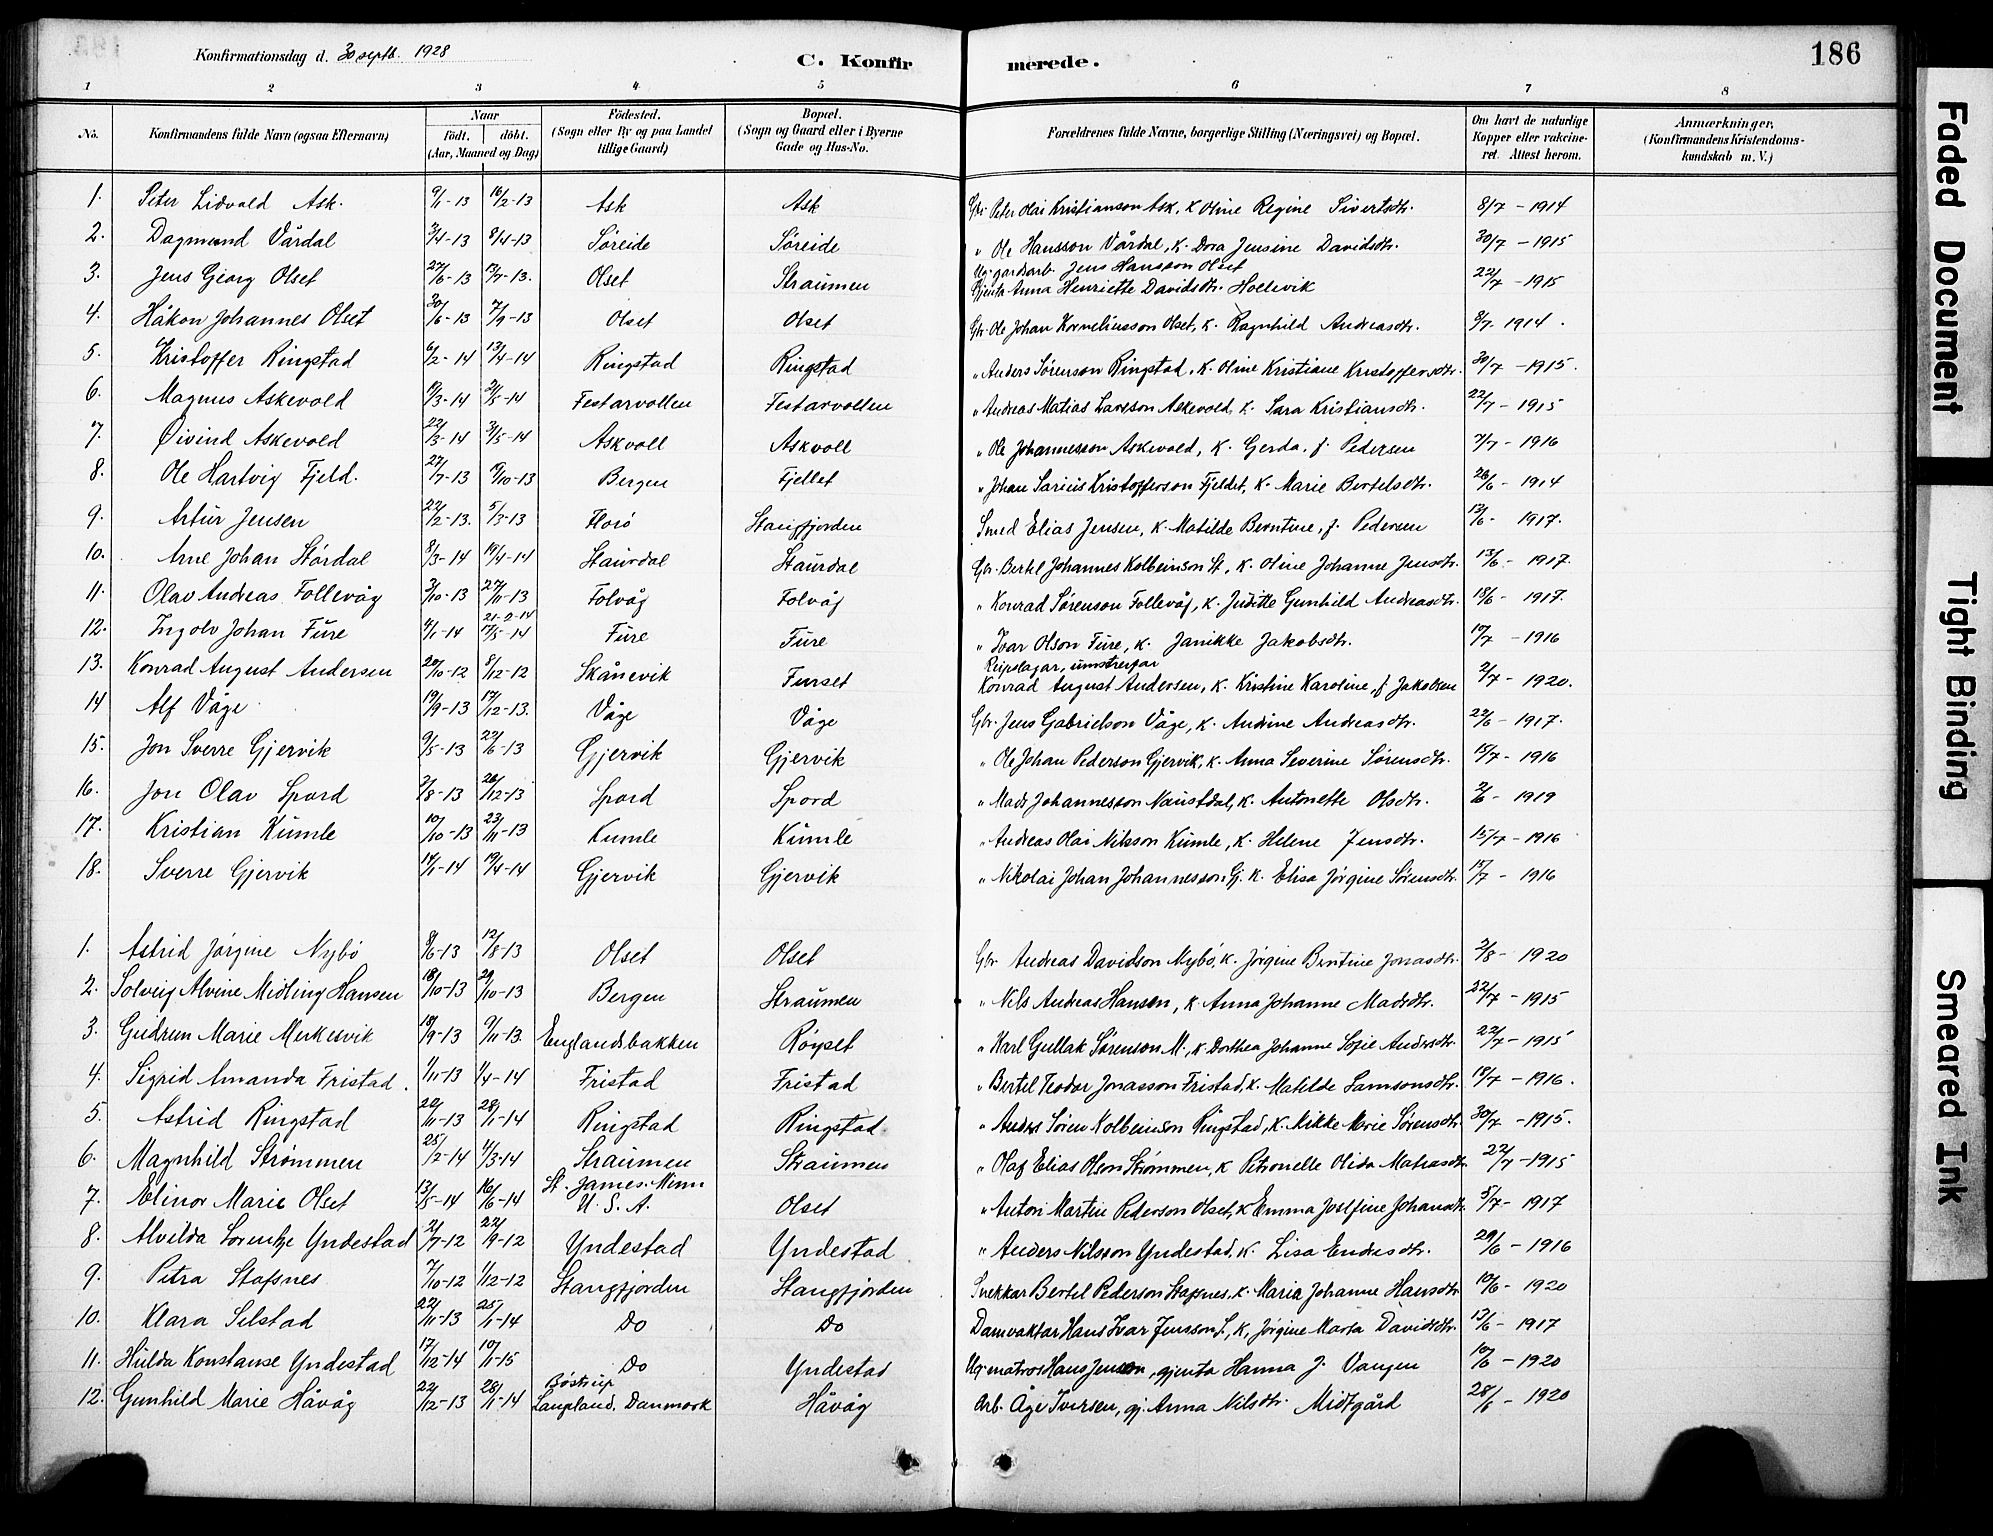 Konfirmationsdag d. 30 septb. 1928
C. Konfirmerede.
186
1 2 3 4 5 6 7 8
No. Konfirmandens fulde Navn (ogsaa Efternavn) Naar födt. döbt. (Aar, Maaned og Dag) Födested. (Sogn eller By og paa Landet tillige Gaard) Bopæl. (Sogn og Gaard eller i Byerne Gade og Hus-No. Forældrenes fulde Navne, borgerlige Stilling (Næringsvei) og Bopæl. Om havt de naturlige Kopper eller vakcineret. Attest herom. Anmærkninger, (Konfirmandens Kristendomskundskab m. V.)
1. Peter Lidvald Ask. 9/1-13 16/2-13 Ask Ask Gbr. Peter Olai Kristianson Ask, k. Oline Regine Sivertsdtr. 8/7 - 1914
2. Dagmund Vårdal 3/4-13 8/4-13 Søreide Søreide " Ole Hansson Vårdal, k. Dora Jensine Davidsdtr. 30/7 - 1915
3. Jens Georg Olset 27/6-13 13/7-13. Olset Straumen Ug. gardsarb. Jens Hansson Olset
Gjenta Anna Henriette Davidsdtr. Hollevik 22/7 - 1915
4. Håkon Johannes Olset 30/6-13 7/9-13 Olset Olset Gbr. Ole Johan Korneliusson Olset, k. Ragnhild Andreasdtr. 8/7 - 1914.
5. Kristoffer Ringstad 6/2-14 13/4-14 Ringstad Ringstad " Anders Sørenson Ringstad, k. Oline Kristiane Kristoffersdtr. 30/7 - 1915.
6. Magnus Askevold 19/3-14 3/5-14 Festarvollen Festarvollen " Andreas Matias Larsson Askevold, k. Sara Kristiansdtr. 22/7 - 1915
7. Øivind Askevold 22/3-14 3/5-14 Askvoll Askvoll " Ole Johannesson Askevold, k. Gerda, f. Pedersen 7/7 - 1916
8. Ole Hartvig Fjeld. 27/7-13 19/10-13 Bergen Fjellet " Johan Sarius Kristofferson Fjeldet, k. Marie Bertelsdtr. 26/6 - 1914
9. Artur Jensen 22/2-13. 5/3-13 Florö Stangfjorden Smed Elias Jensen, k. Matilde Berntine, f. Pedersen 12/6 - 1917.
10. Arne Johan Stårdal 8/3-14 19/4-14 Staurdal Staurdal Gbr. Bertel Johannes Kolbeinson St, k. Oline Johanne Jensdtr. 13/6 - 1917.
11. Olav Andreas Follevåg 3/10-13 27/11-13 Folvåg Folvåg " Konrad Sørenson Follevåg, k. Juditte Gunhild Andreasdtr. 18/6 - 1917.
12. Ingolv Johan Fure 4/1-14 21-2-14 17/5-14 Fure Fure " Ivar Olson Fure, k. Janikke Jakobsdtr. 10/7 - 1916
13. Konrad August Andersen 20/10-12 8/12-12 Skånevik Furset Reipslagar, umstreifar
Konrad August Andersen, k. Kristine Karoline, f. Jakobsen 2/7 - 1920.
14 Alf Våge 19/9-13 17/12-13. Våge Våge Gbr. Jens Gabrielson Våge, k. Andrine Andreasdtr. 22/6 - 1917.
15. Jon Sverre Gjervik 9/5-13 22/6-13 Gjervik Gjervik " Ole Johan Pederson Gjervik, k. Anna Severine Sørensdtr. 15/7 - 1916
16. Jon Olav Spord 2/8-13 26/12-13 Spord Spord " Mads Johannesson Naustdal, k. Antonette Olsdtr. 2/6 - 1919
17. Kristian Kumle 10/10-13 23/11-13 Kumle Kumle " Andreas Olai Nilsson Kumle, k. Helene Jensdtr. 15/7 - 1916
18. Sverre Gjervik 14/1-14 19/4-14 Gjervik Gjervik " Nikolai Johan Johannesson Gj. k. Elisa Jørgine Sørensdtr. 15/7 - 1916
1. Astrid Jørgine Nybö 8/6-13 12/8-13 Olset Olset Gbr Andreas Davidson Nybö, k. Jørgine Bentine Jonasdtr. 2/8 - 1920
2. Solveig Alvine Midling Hansen 18/10-13 29/10-13 Bergen Straumen " Nils Andreas Hansen, k. Anna Johanne Madsdtr. 22/7 - 1915
3. Gudrun Marie Merkesvik 18/9-13 9/11-13. Englandsbakken Röyset " Karl Gullak Sørenson M., k. Dorthea Johanne Sofie Andersdtr. 22/7 - 1915
4. Sigrid Amanda Fristad. 1/11-13 1/4-14 Fristad Fristad " Bertel Teodor Jonasson Fristad, k. Matilde Samsonsdtr. 18/7 - 1916.
5. Astrid Ringstad 20/11-13 28/1-14 Ringstad Ringstad " Anders Sören Kolbeinson Ringstad, k. Mikke Marie Sørensdtr. 30/7 - 1915.
6. Magnhild Strømmen 25/2-14 1/3-14 Straumen Straumen " Olaf Elias Olson Strømmen, k Petronelle Olida Matiasdtr. 22/7 - 1915
7. Elinor Marie Olset 13/5-14 16/6-14 St. James. Minn
U. S. A. Olset " Anton Martin Pederson Olset, k Emma Josefine Johansdtr. 5/7 - 1917
8. Alvilda Lorentze Yndestad 21/7-12 22/9-12 Yndestad Yndestad " Anders Nilsson Yndestad, k. Lisa Endresdtr. 29/6 - 1916
9. Petra Stafsnes 7/10-12 1/12-12 Stangfjorden Stangfjorden Snekkar Bertel Pederson Stafsnes, k. Maria Johanne Hansdtr 10/6 - 1920
10. Klara Selstad 22/11-13 25/1-14 Do Do Damvaktar Hans Ivar Jensson S., k. Jørgine Marta Davidsdtr. 13/6 - 1917
11. Hulda Konstanse Yndestad 17/12-14 10/1-15 Do Yndestad Ug. matros Hans Jenson, gjenta Hanna J. Vangen 10/6 - 1920
12. Gunhild Marie Håvåg 22/12-13 28/1-14 Böstrup
Langland, Danmark Håvåg Arb. Åge Iversen, gj. Anna Nilsdtr. Midtgård 28/6 - 1920
Faded Document
Tight Binding
Smeared Ink